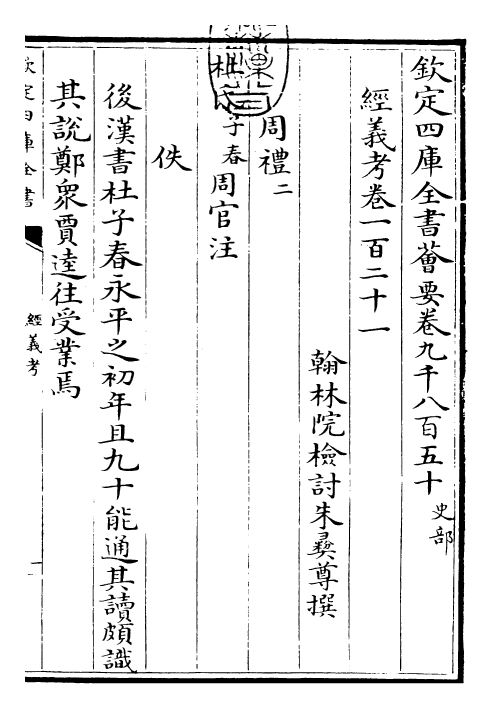 欽定四庫全書薈要卷九千八百五十 史部
經義考卷一百二十一
翰林院檢討朱彝尊撰
周禮二
杜氏子春周官注
佚
後漢書杜子春永平之初年且九十能通其讀頗識
其說鄭衆賈逵往受業焉
欽定四庫全書
經義考
一